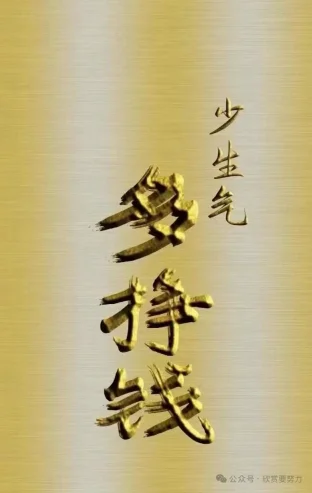 少生气
多挣钱
公众号·欣赏要努力